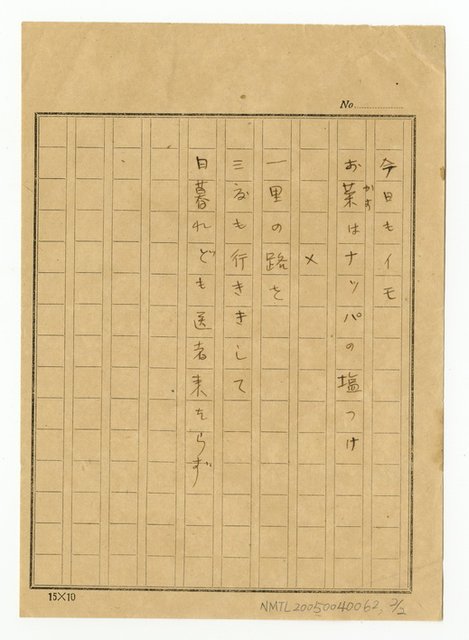 No.
今日もイモ
お菜はナッパの塩つけ
かず
×
一里の路を
三度も行ききして
日暮れども医者来たらず
15×10
NMTL20050040062, 2/2